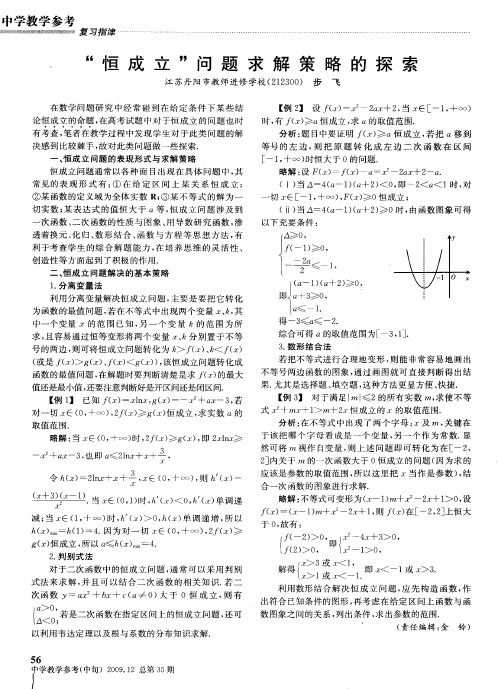 中学教学参考
复习指津
“恒成立”问题求解策略的探索
江苏丹阳市教师进修学校(212300) 步 飞
在数学问题研究中经常碰到在给定条件下某些结
论恒成立的命题,在高考试题中对于恒成立的问题也时
有考查,笔者在教学过程中发现学生对于此类问题的解
决感到比较棘手,故对此类问题做一些探索.
一、恒成立问题的表现形式与求解策略
恒成立问题通常以各种面目出现在具体问题中,其
常见的表现形式有:①在给定区间上某关系恒成立;
②某函数的定义域为全体实数R;③某不等式的解为一
切实数;某表达式的值恒大于a等,恒成立问题涉及到
一次函数、二次函数的性质与图象、用导数研究函数,渗
透着换元、化归、数形结合、函数与方程等思想方法,有
利于考查学生的综合解题能力,在培养思维的灵活性、
创造性等方面起到了积极的作用.
二、恒成立问题解决的基本策略
1.分离变量法
利用分离变量解决恒成立问题,主要是要把它转化
为函数的最值问题,若在不等式中出现两个变量x、k,其
中一个变量x的范围已知,另一个变量k的范围为所
求,且容易通过恒等变形将两个变量x、k分别置于不等
号的两边,则可将恒成立问题转化为k>f(x)、k<f(x)
(或是f(x)>g(x)、f(x)<g(x)),该恒成立问题转化成
函数的最值问题,在解题时要判断清楚是求f(x)的最大
值还是最小值,还要注意判断好是开区间还是闭区间.
【例1】 已知f(x)=xlnx,g(x)=-x²+ax-3,若
对一切x∈(0,+∞),2f(x)≥g(x)恒成立,求实数a的
取值范围.
略解:当x∈(0,+∞)时,2f(x)≥g(x),即2xlnx≥
-x²+ax-3,也即a≤2lnx+x+3/x,
令h(x)=2lnx+x+3/x,x∈(0,+∞),则h′(x)=
(x+3)(x-1)/x².当x∈(0,1)时,h′(x)<0,h′(x)单调递
减;当x∈(1,+∞)时,h′(x)>0,h(x)单调递增,所以
h(x)min=h(1)=4.因为对一切x∈(0,+∞),2f(x)≥
g(x)恒成立,所以a≤h(x)min=4.
2.判别式法
对于二次函数中的恒成立问题,通常可以采用判别
式法来求解,并且可以结合二次函数的相关知识.若二
次函数y=ax²+bx+c(a≠0)大于0恒成立,则有
{a>0,Δ<0;若是二次函数在指定区间上的恒成立问题,还可
以利用韦达定理以及根与系数的分布知识求解.
【例2】 设f(x)=x²-2ax+2,当x∈[-1,+∞)
时,有f(x)≥a恒成立,求a的取值范围.
分析:题目中要证明f(x)≥a恒成立,若把a移到
等号的左边,则把原题转化成左边二次函数在区间
[-1,+∞)时恒大于0的问题.
略解:设F(x)=f(x)-a=x²-2ax+2-a.
(ⅰ)当Δ=4(a-1)(a+2)<0,即-2<a<1时,对
一切x∈[-1,+∞),F(x)≥0恒成立;
(ⅱ)当Δ=4(a-1)(a+2)≥0时,由函数图象可得
以下充要条件:
{Δ≥0,
f(-1)≥0,
-(-2a)/2≤-1,
即{(a-1)(a+2)≥0,
a+3≥0,
a≤-1,
y
-1 O x
得-3≤a≤-2.
综合可得a的取值范围为[-3,1].
3.数形结合法
若把不等式进行合理地变形,则能非常容易地画出
不等号两边函数的图象,通过画图就可直接判断得出结
果.尤其是选择题、填空题,这种方法更显方便、快捷.
【例3】 对于满足|m|≤2的所有实数m,求使不等
式x²+mx+1>m+2x恒成立的x的取值范围.
分析:在不等式中出现了两个字母:x及m,关键在
于该把哪个字母看成是一个变量,另一个作为常数.显
然可将m视作自变量,则上述问题即可转化为在[-2,
2]内关于m的一次函数大于0恒成立的问题(因为求的
应该是参数的取值范围,所以这里把x当作是参数),结
合一次函数的图象进行求解.
略解:不等式可变形为(x-1)m+x²-2x+1>0,设
f(x)=(x-1)m+x²-2x+1,则f(x)在[-2,2]上恒大
于0,故有:
{f(-2)>0,f(2)>0,即{x²-4x+3>0,x²-1>0,
解得{x>3或x<1,x>1或x<-1.即x<-1或x>3.
利用数形结合解决恒成立问题,应先构造函数,作
出符合已知条件的图形,再考虑在给定区间上函数与函
数图象之间的关系,列出条件,求出参数的范围.
(责任编辑:金 铃)
56
中学教学参考(中旬) 2009.12 总第35期